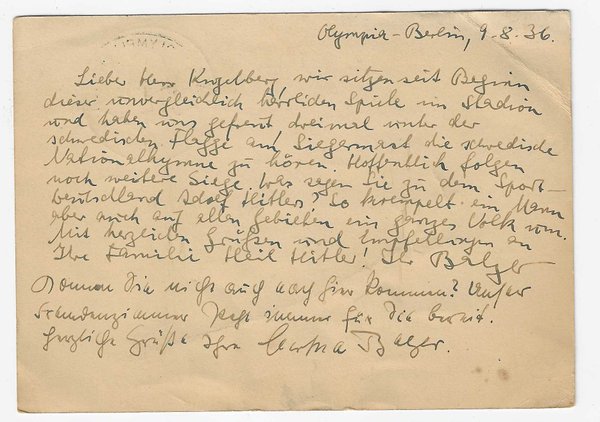 Olympia-Berlin, 9.8.36.
Lieber Herr Kugelberg, wir sitzen seit Beginn
dieser unvergleichlich herrlichen Spiele im Stadion
und haben uns gefreut, dreimal unter der
schwedischen Flagge am Siegermast die schwedische
Nationalhymne zu hören. Hoffentlich folgen
noch weitere Siege. Was sagen Sie zu dem Sport-
Deutschland Adolf Hitlers? So krempelt ein Mann
aber auch auf allen Gebieten ein ganzes Volk um.
Mit herzlichen Grüßen und Empfehlungen an
Ihre Familie Heil Hitler! Ihr Balzer
Können Sie nicht auch nach hier kommen? Unser
Fremdenzimmer steht immer für Sie bereit.
Herzliche Grüße Ihre Balzer.